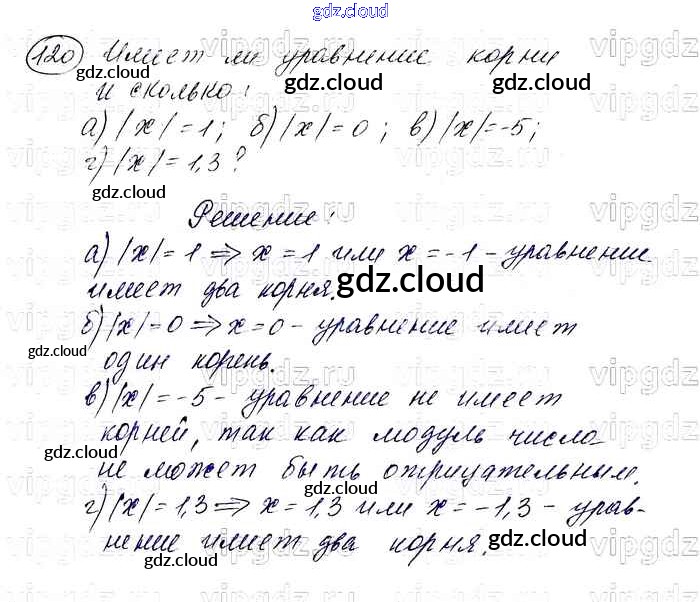 gdz.cloud
120) Имеет ли уравнение корни
и сколько:
а) |x| = 1; б) |x| = 0; в) |x| = -5;
г) |x| = 1,3?
Решение:
а) |x| = 1 ⇒ x = 1 или x = -1 - уравнение
имеет два корня.
б) |x| = 0 ⇒ x = 0 - уравнение имеет
один корень.
в) |x| = -5 - уравнение не имеет
корней, так как модуль числа
не может быть отрицательным.
г) |x| = 1,3 ⇒ x = 1,3 или x = -1,3 - урав-
нение имеет два корня.
gdz.cloud
gdz.cloud
gdz.cloud
gdz.cloud
gdz.cloud
gdz.cloud
gdz.cloud
gdz.cloud
gdz.cloud
gdz.cloud
gdz.cloud
gdz.cloud
vipgdz.ru